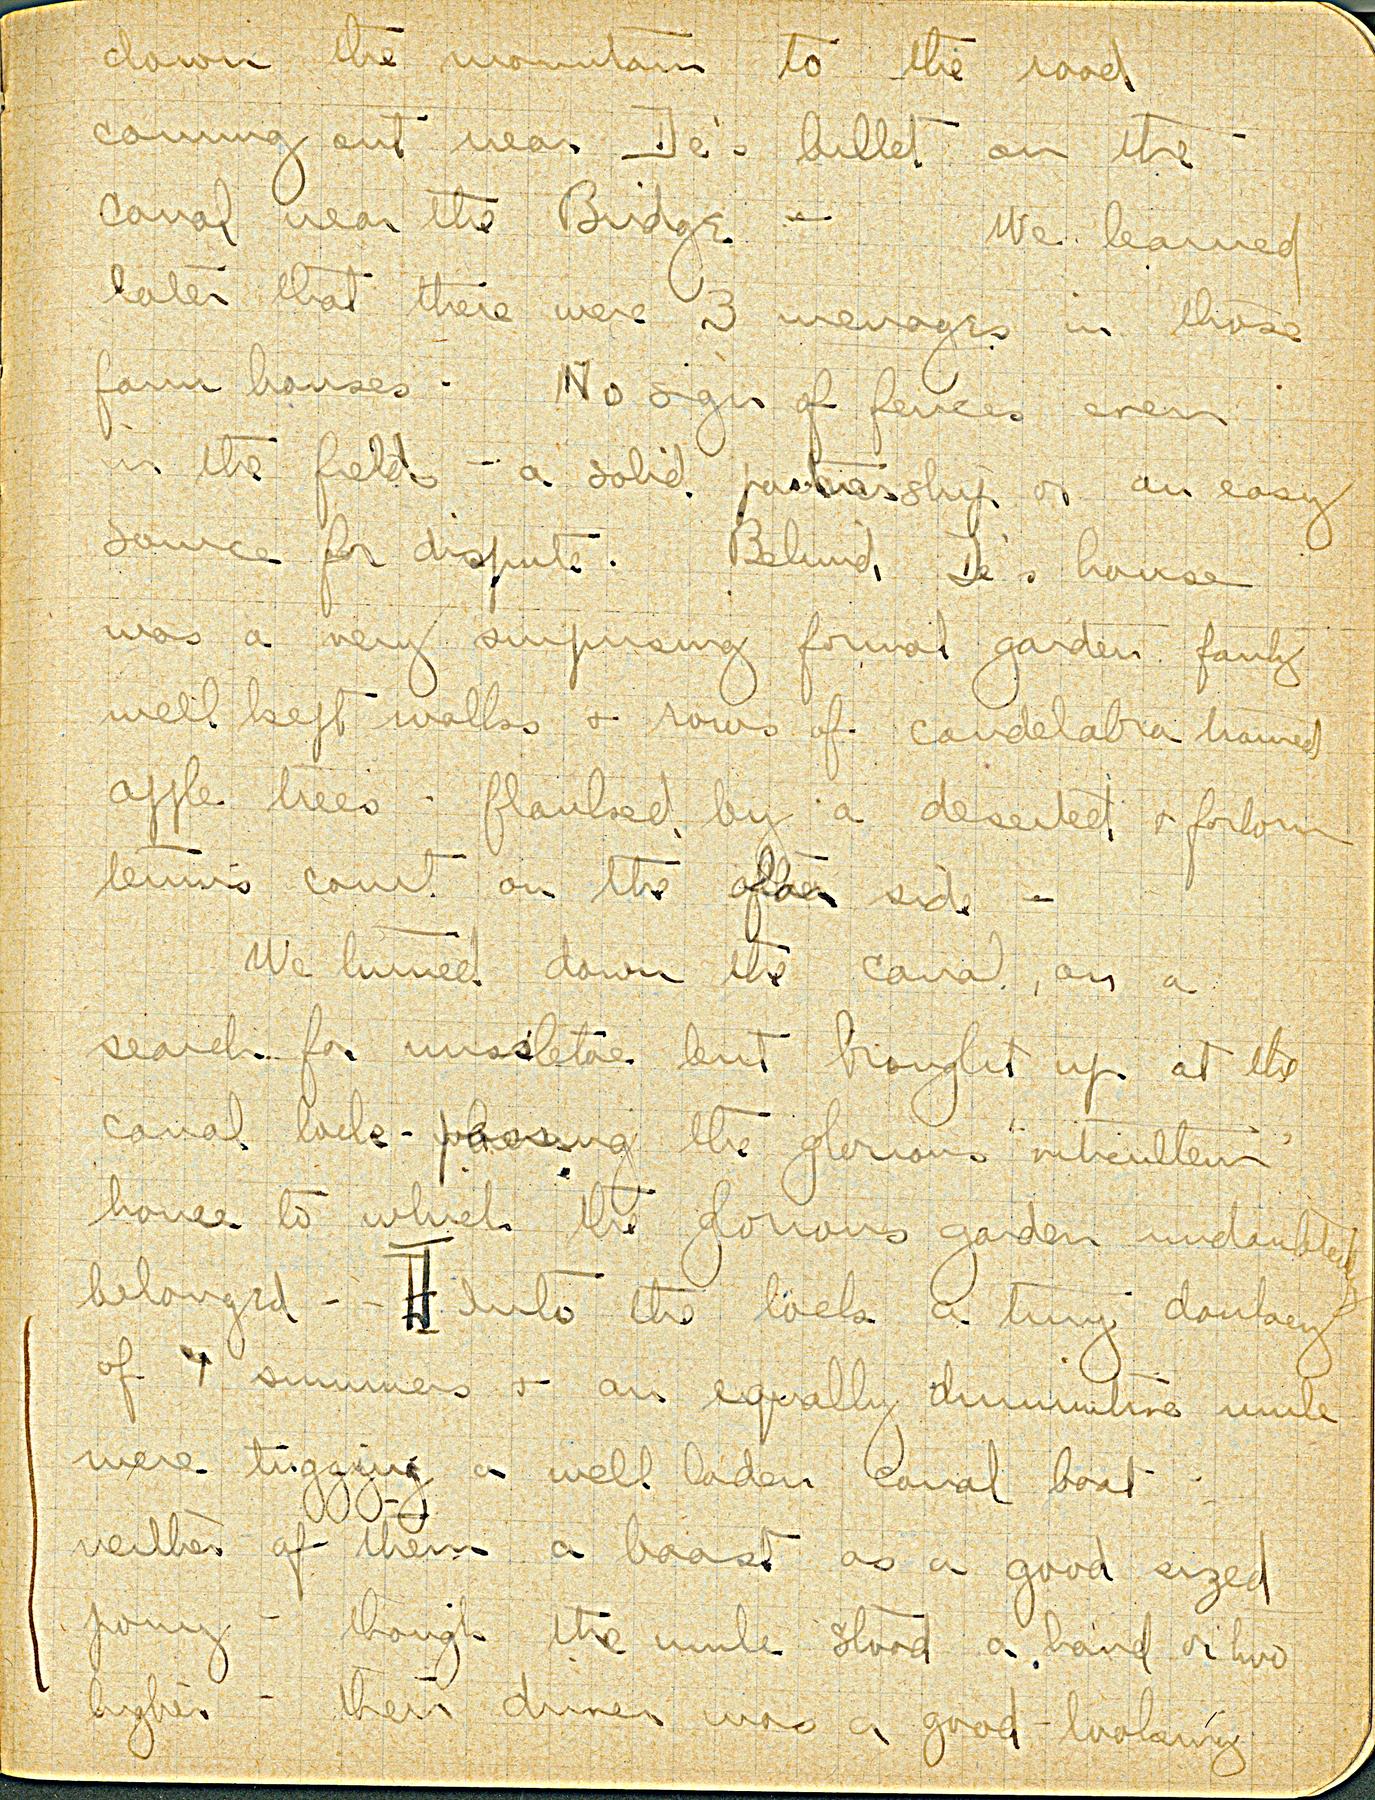 down the mountain to the road
coming out near De's billet on the
canal near the Bridge - We learned
later that there were 3 menages in those
farm houses - No sign of fences even
in the fields - a solid partnership or an easy
source for dispute. Behind De's house
was a very surprising formal garden fairly
well kept walks & rows of candelabra trained
apple trees - flanked by a deserted & forlorn
tennis court on the side -
We turned down the canal, on a
search for missletoe but brought up at the
canal lock - passing the glorious "viticulteur"
house to which the glorious garden undoubtedly
belonged - - Into the lock a tiny donkey
of summers & an equally diminutive mule
were tugging a well laden canal boat -
neither of them a boast as a good sized
pony - though the mule stood a hand or two
higher - their driver was a good-looking